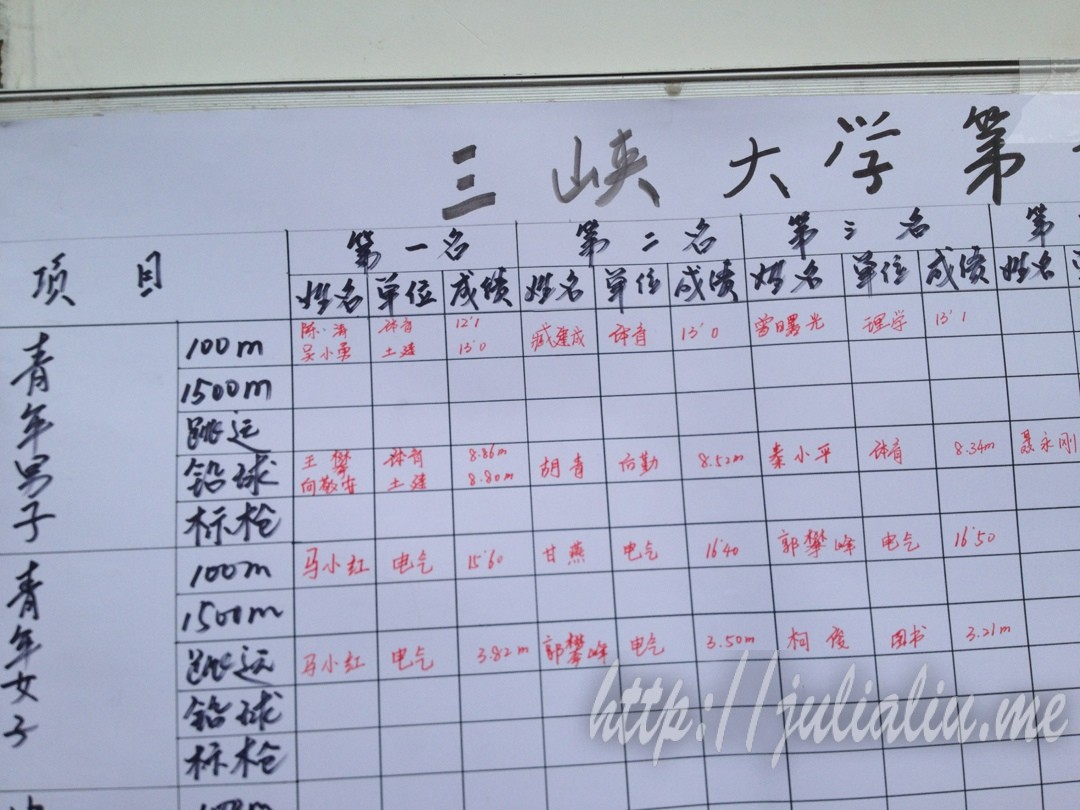 三峡大学第
项目 第一名 第二名 第三名 第
姓名 单位 成绩 姓名 单位 成绩 姓名 单位 成绩 姓名
青年男子
100m 陈涛 体育 12"1 臧建成 体育 13"0 曾曙光 理学 13"1
吴小勇 土建 13"0
1500m
跳远
铅球 王攀 体育 8.86m 胡青 后勤 8.52m 秦小平 体育 8.34m 聂永刚
向敬安 土建 8.80m
标枪
青年女子
100m 马小红 电气 15"60 甘燕 电气 16"40 郭攀峰 电气 16"50
1500m
跳远 马小红 电气 3.82m 郭攀峰 电气 3.50m 柯俊 图书 3.21m
铅球
标枪
100m
http://julialin.me